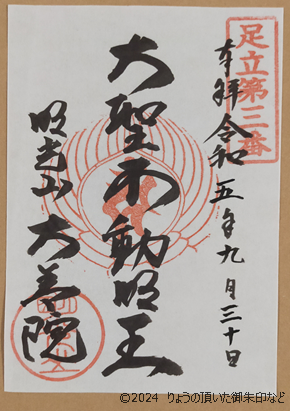 足立第三番
奉拝 令和五年九月三十日
大聖不動明王
明光山 大善院
©2024 りょうの頂いた御朱印など